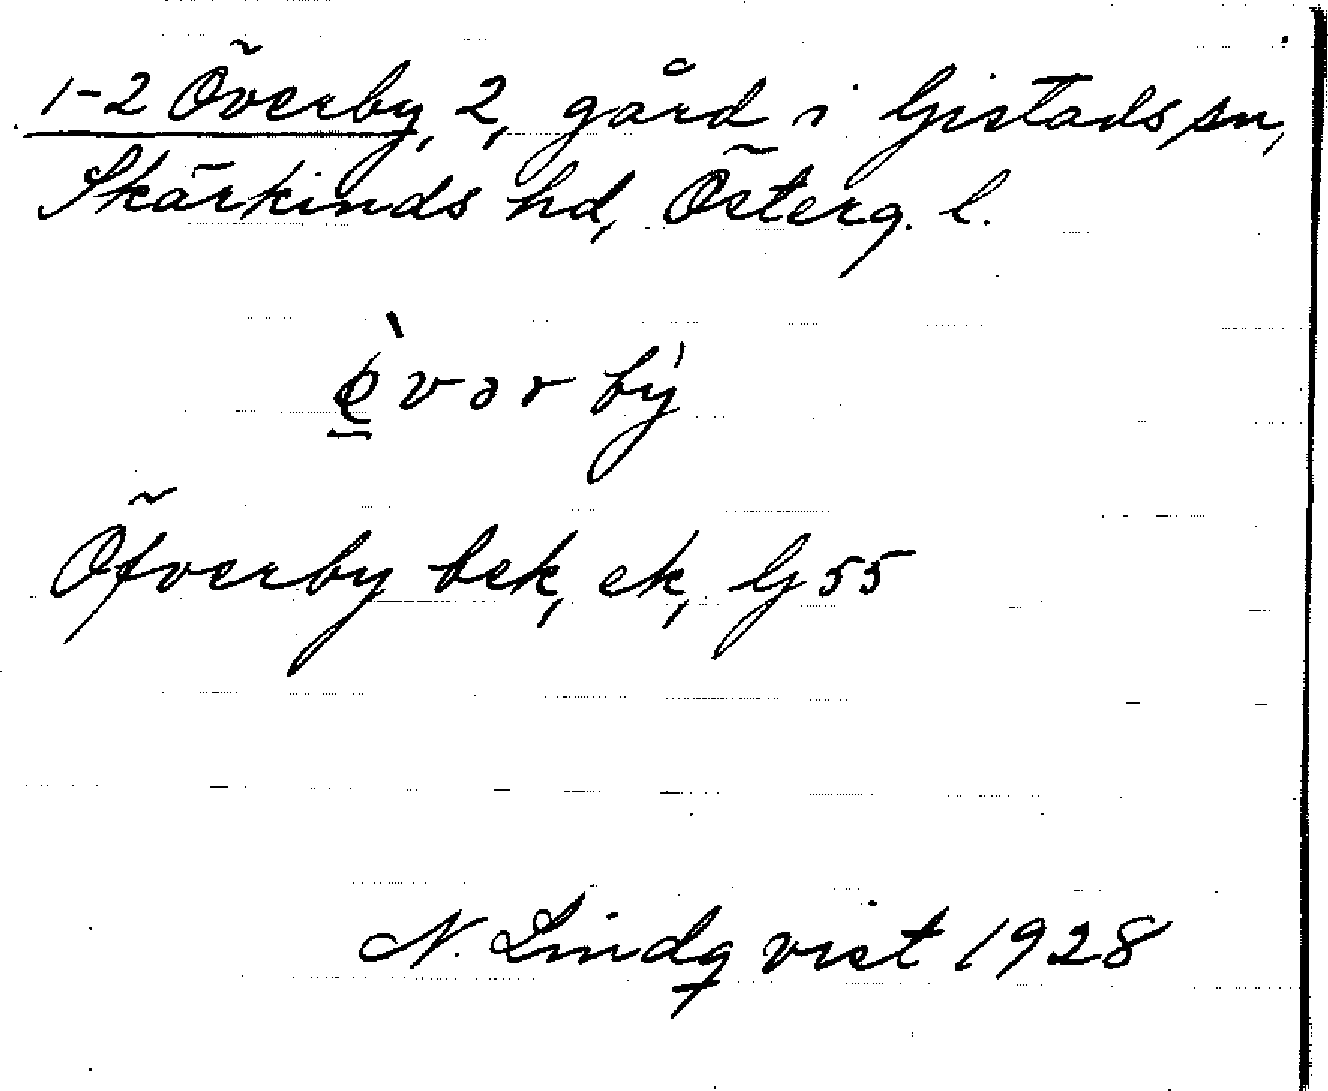 1-2 Överby, 2, gård i Gistads sn,
Skärkinds hd, Österg. l.
ø̀vərbý
Öfverby bek, ek, G 55
N. Lindqvist 1928